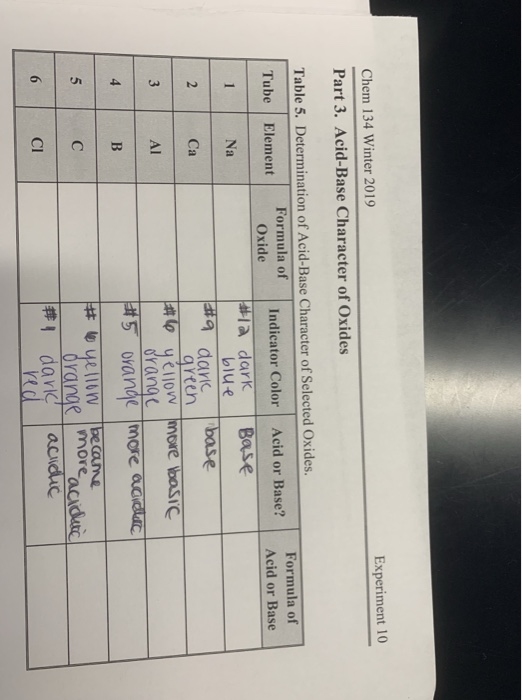 Chem 134 Winter 2019
Experiment 10
Part 3. Acid-Base Character of Oxides
Table 5. Determination of Acid-Base Character of Selected Oxides.
Tube Element Formula of Oxide Indicator Color Acid or Base? Formula of Acid or Base
1 Na #12 dark blue Base
2 Ca #9 dark green base
3 Al #6 yellow orange more basic
4 B #5 orange more acidic
5 C #6 yellow orange became more acidic
6 Cl #1 dark red acidic